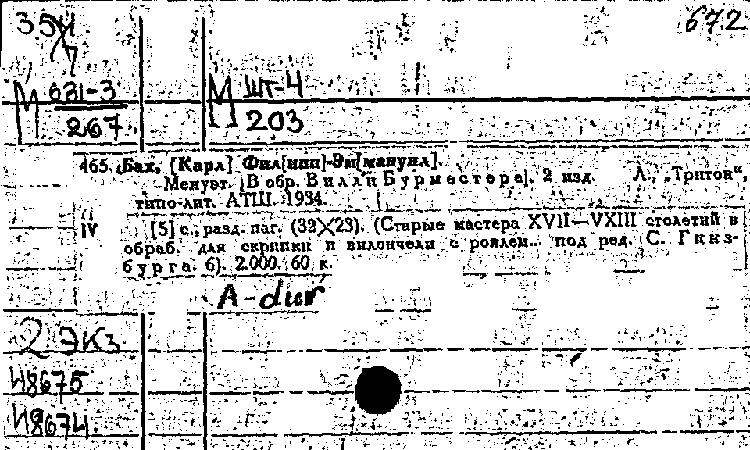 35М 672
7
М 631-3 М ШГ-4
267 203
465. Бах, [Карл] Фил[ипп]-Эм[мануил].
Менуэт. [В обр. Вилли Бурместера]. 2 изд. Л., „Тритон“,
типо-лит. АТШ. 1934.
IV [5] с., разд. паг. (32×23). (Старые мастера XVII—XVIII столетий в
обраб. для скрипки и виолончели с роялем... под ред. С. Гинз-
бурга. 6). 2.000. 60 к.
A-dur
2 экз
Н8675
Н8674